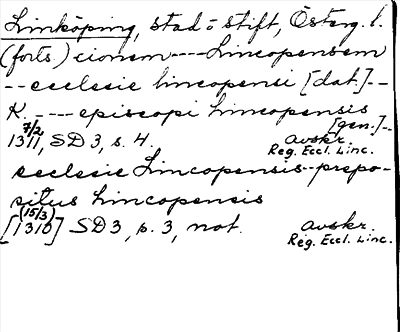 Linköping, stad o stift, Österg. l.
(forts.) cionem---- Lincopensem
-- ecclesie lincopensi [dat.]--
K. - --- episcopi Lincopensis [gen.]--
7/2 1311, SD 3, s. 4. avskr. Reg. Eccl. Linc.
ecclesie Lincopensis-prepo-
situs Lincopensis
[(15/3) 1310] SD 3, s. 3, not. avskr. Reg. Eccl. Linc.